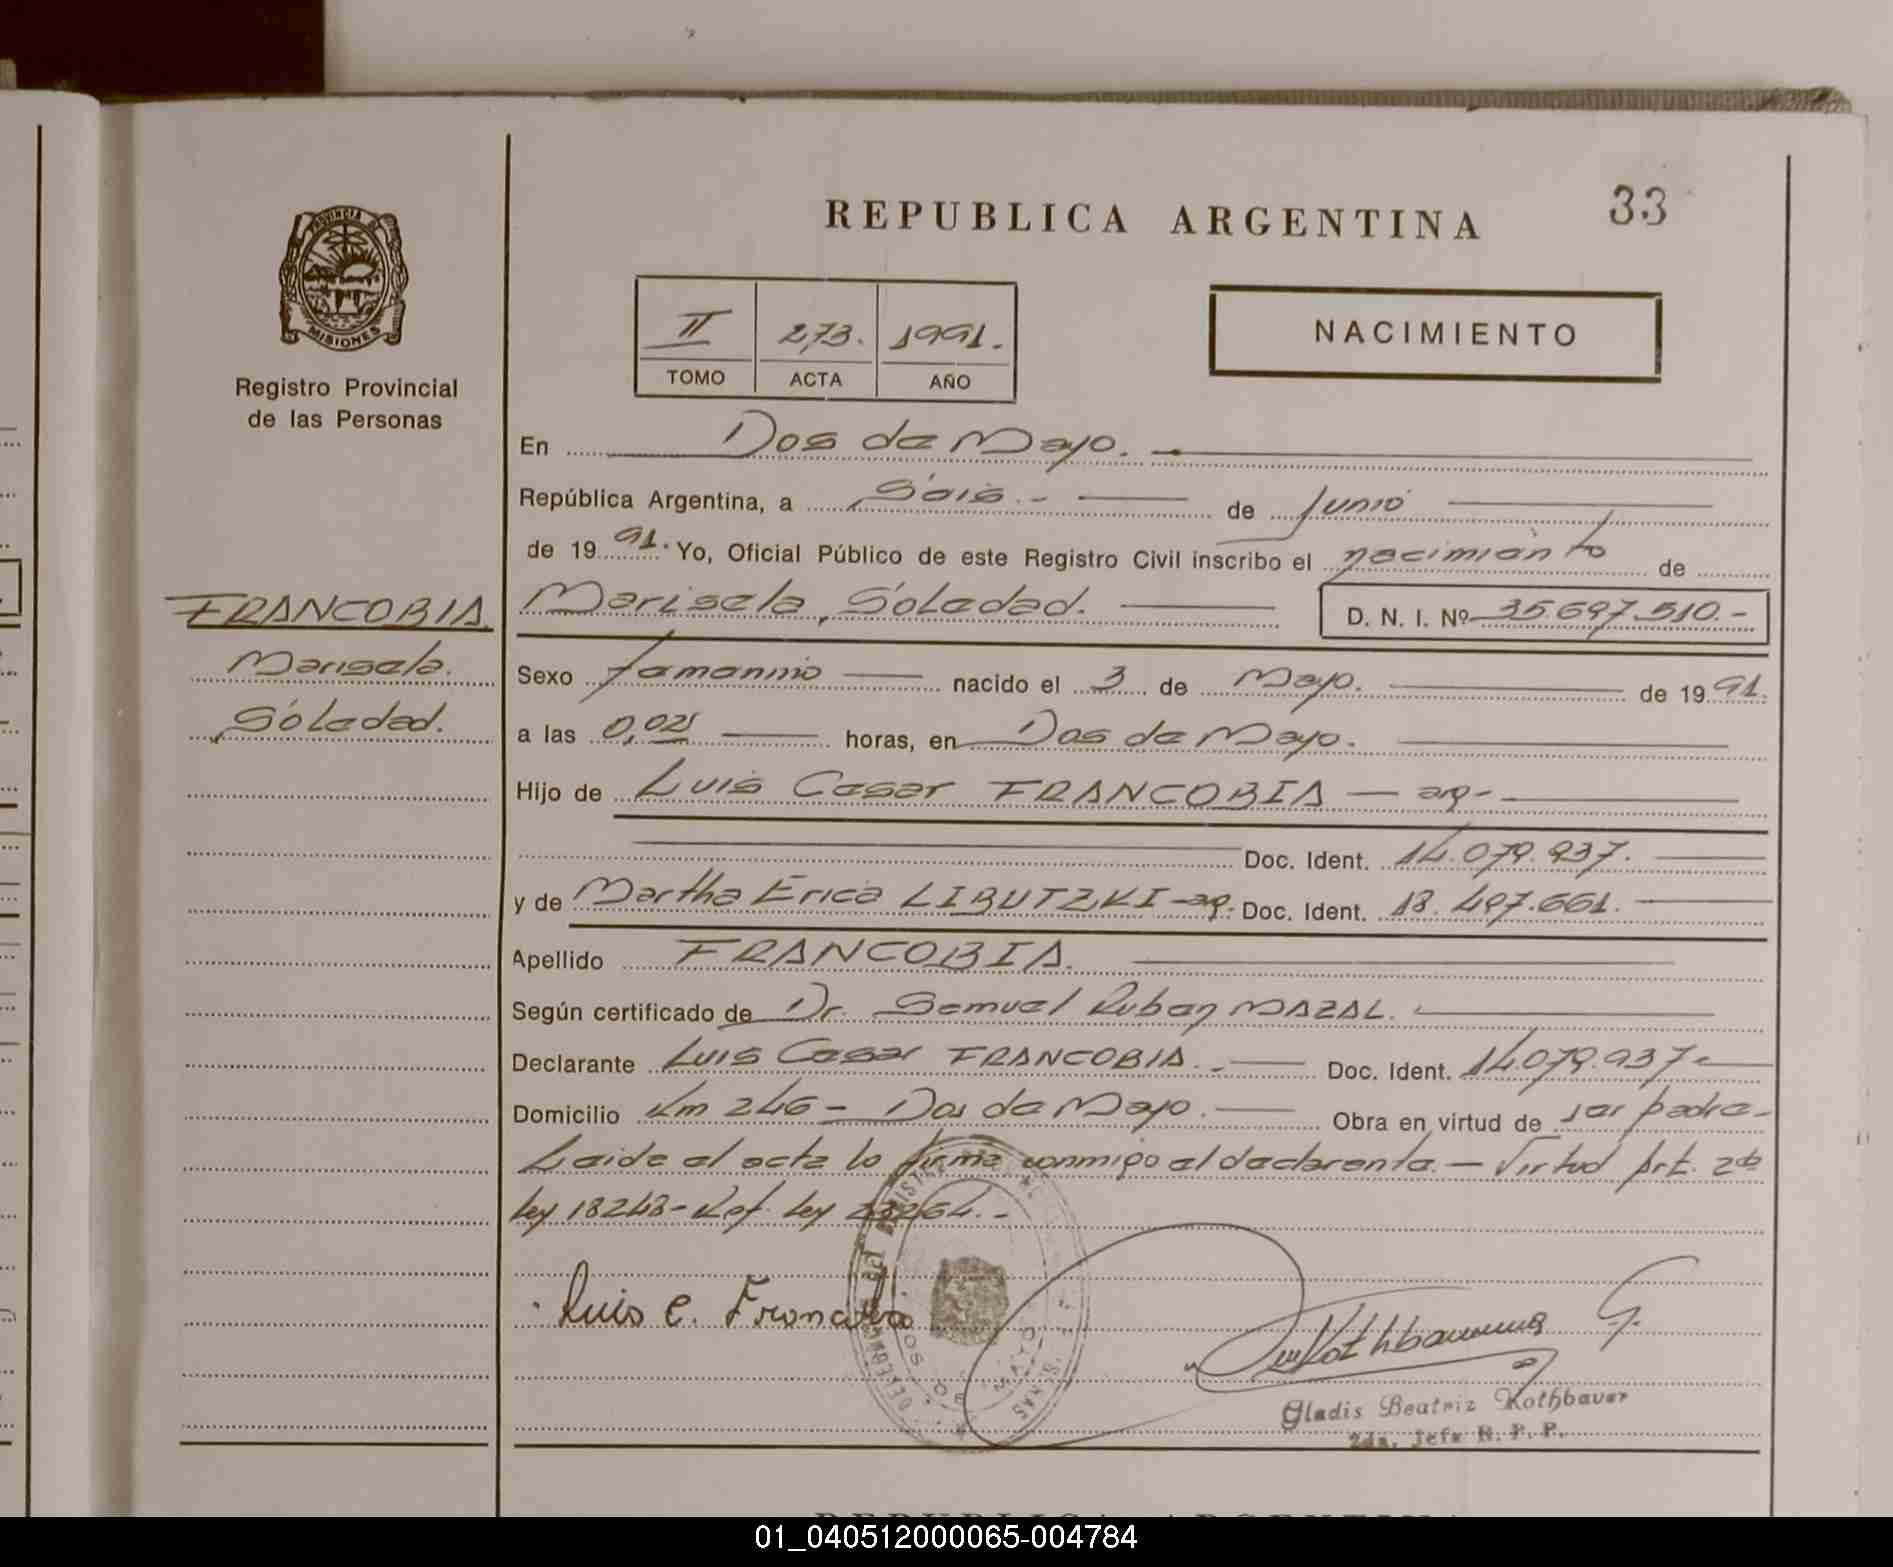 REPUBLICA ARGENTINA
33
PROVINCIA DE
MISIONES
Registro Provincial
de las Personas
II 273. 1991.
TOMO ACTA AÑO
NACIMIENTO
En Dos de Mayo.
República Argentina, a Seis.- de Junio
de 1991. Yo, Oficial Público de este Registro Civil inscribo el nacimiento de
FRANCOBIA.
Marisela
Soledad.
Marisela, Soledad. D. N. I. Nº 35.697.510.-
Sexo femenino nacido el 3 de Mayo. de 1991.
a las 0,02 horas, en Dos de Mayo.
Hijo de Luis Cesar FRANCOBIA - arg-
Doc. Ident. 14.079.937.
y de Martha Erica LIBUTZKI - arg. Doc. Ident. 18.497.661.
Apellido FRANCOBIA.
Según certificado de Dr. Samuel Ruben MAZAL.
Declarante Luis Cesar FRANCOBIA.- Doc. Ident. 14.079.937-
Domicilio Km 246 - Dos de Mayo. Obra en virtud de ser padre-
Leida el acta lo firma conmigo el declarante.- Virtud Art. 2do
Ley 18248- Ref. Ley 23264.-
Luis C. Francobia
DOS DE MAYO
Kothbauer G.
Gladis Beatriz Kothbauer
2da. Jefa R. P. P.
REPUBLICA ARGENTINA
01_040512000065-004784